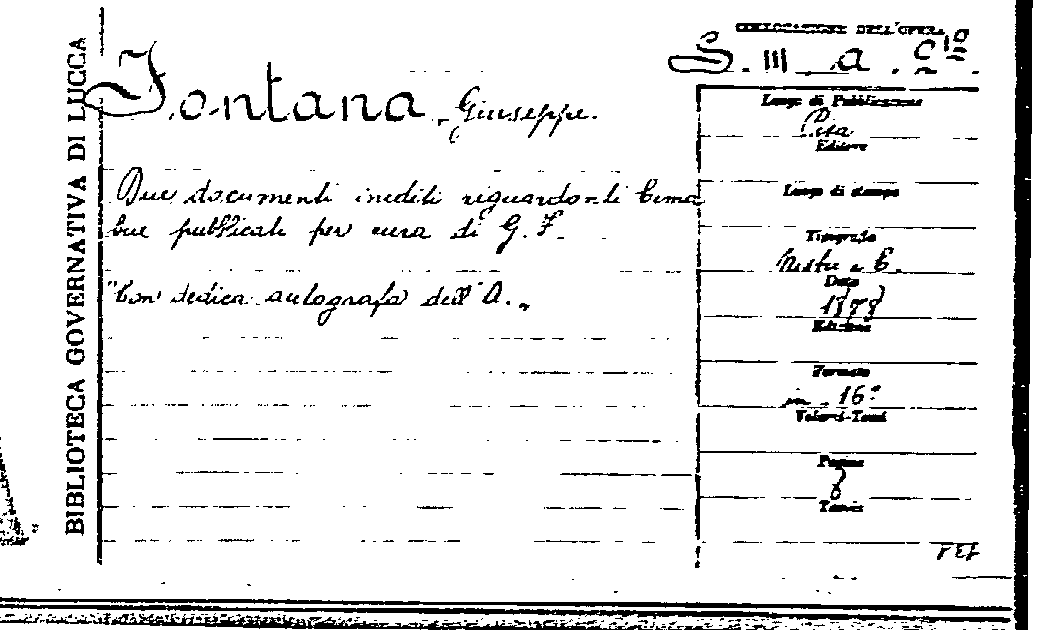 BIBLIOTECA GOVERNATIVA DI LUCCA
COLLOCAZIONE DELL'OPERA
S. III a.
Fontana, Giuseppe.
Due documenti inediti riguardanti Cima
bue pubblicati per cura di G. F.
"Con dedica autografa dell'A."
Luogo di Pubblicazione
Pisa
Editore
Luogo di stampa
Tipografo
Nistri e C.
Data
Edizione
Formato
in 16º
Volumi-Tomi
Pagine
8
Tavole